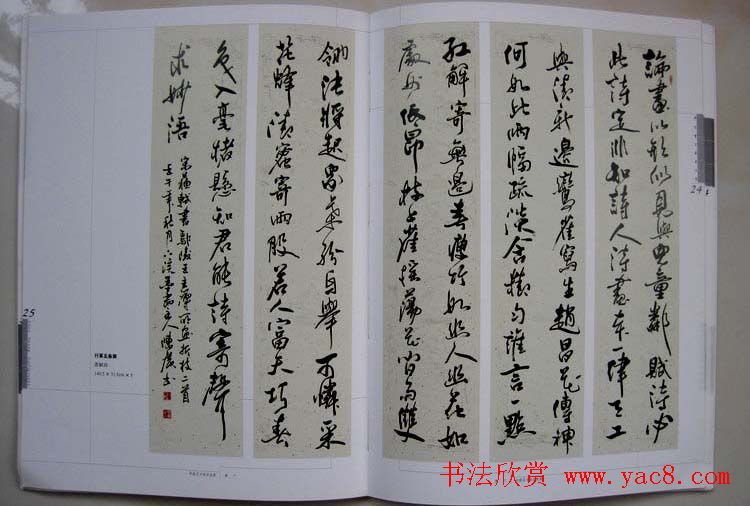 論畫以形似見與兒童鄰賦詩必
此詩定非知詩人詩畫本一律天工
與清新邊鸞雀寫生趙昌花傳神
何如此兩幅疏淡含精勻誰言一點
紅解寄無邊春瘦竹如幽人幽花如
處女低昂枝上雀搖蕩花間雨雙
翎決將起眾葉紛自舉可憐采
花蜂清蜜寄兩股若人富天巧春
色入毫楮懸知君能詩寄聲
求妙語
宋蘇軾書鄢陵王主簿所畫折枝二首
壬午年秋月
24
25
书法欣赏 www.yac8.com